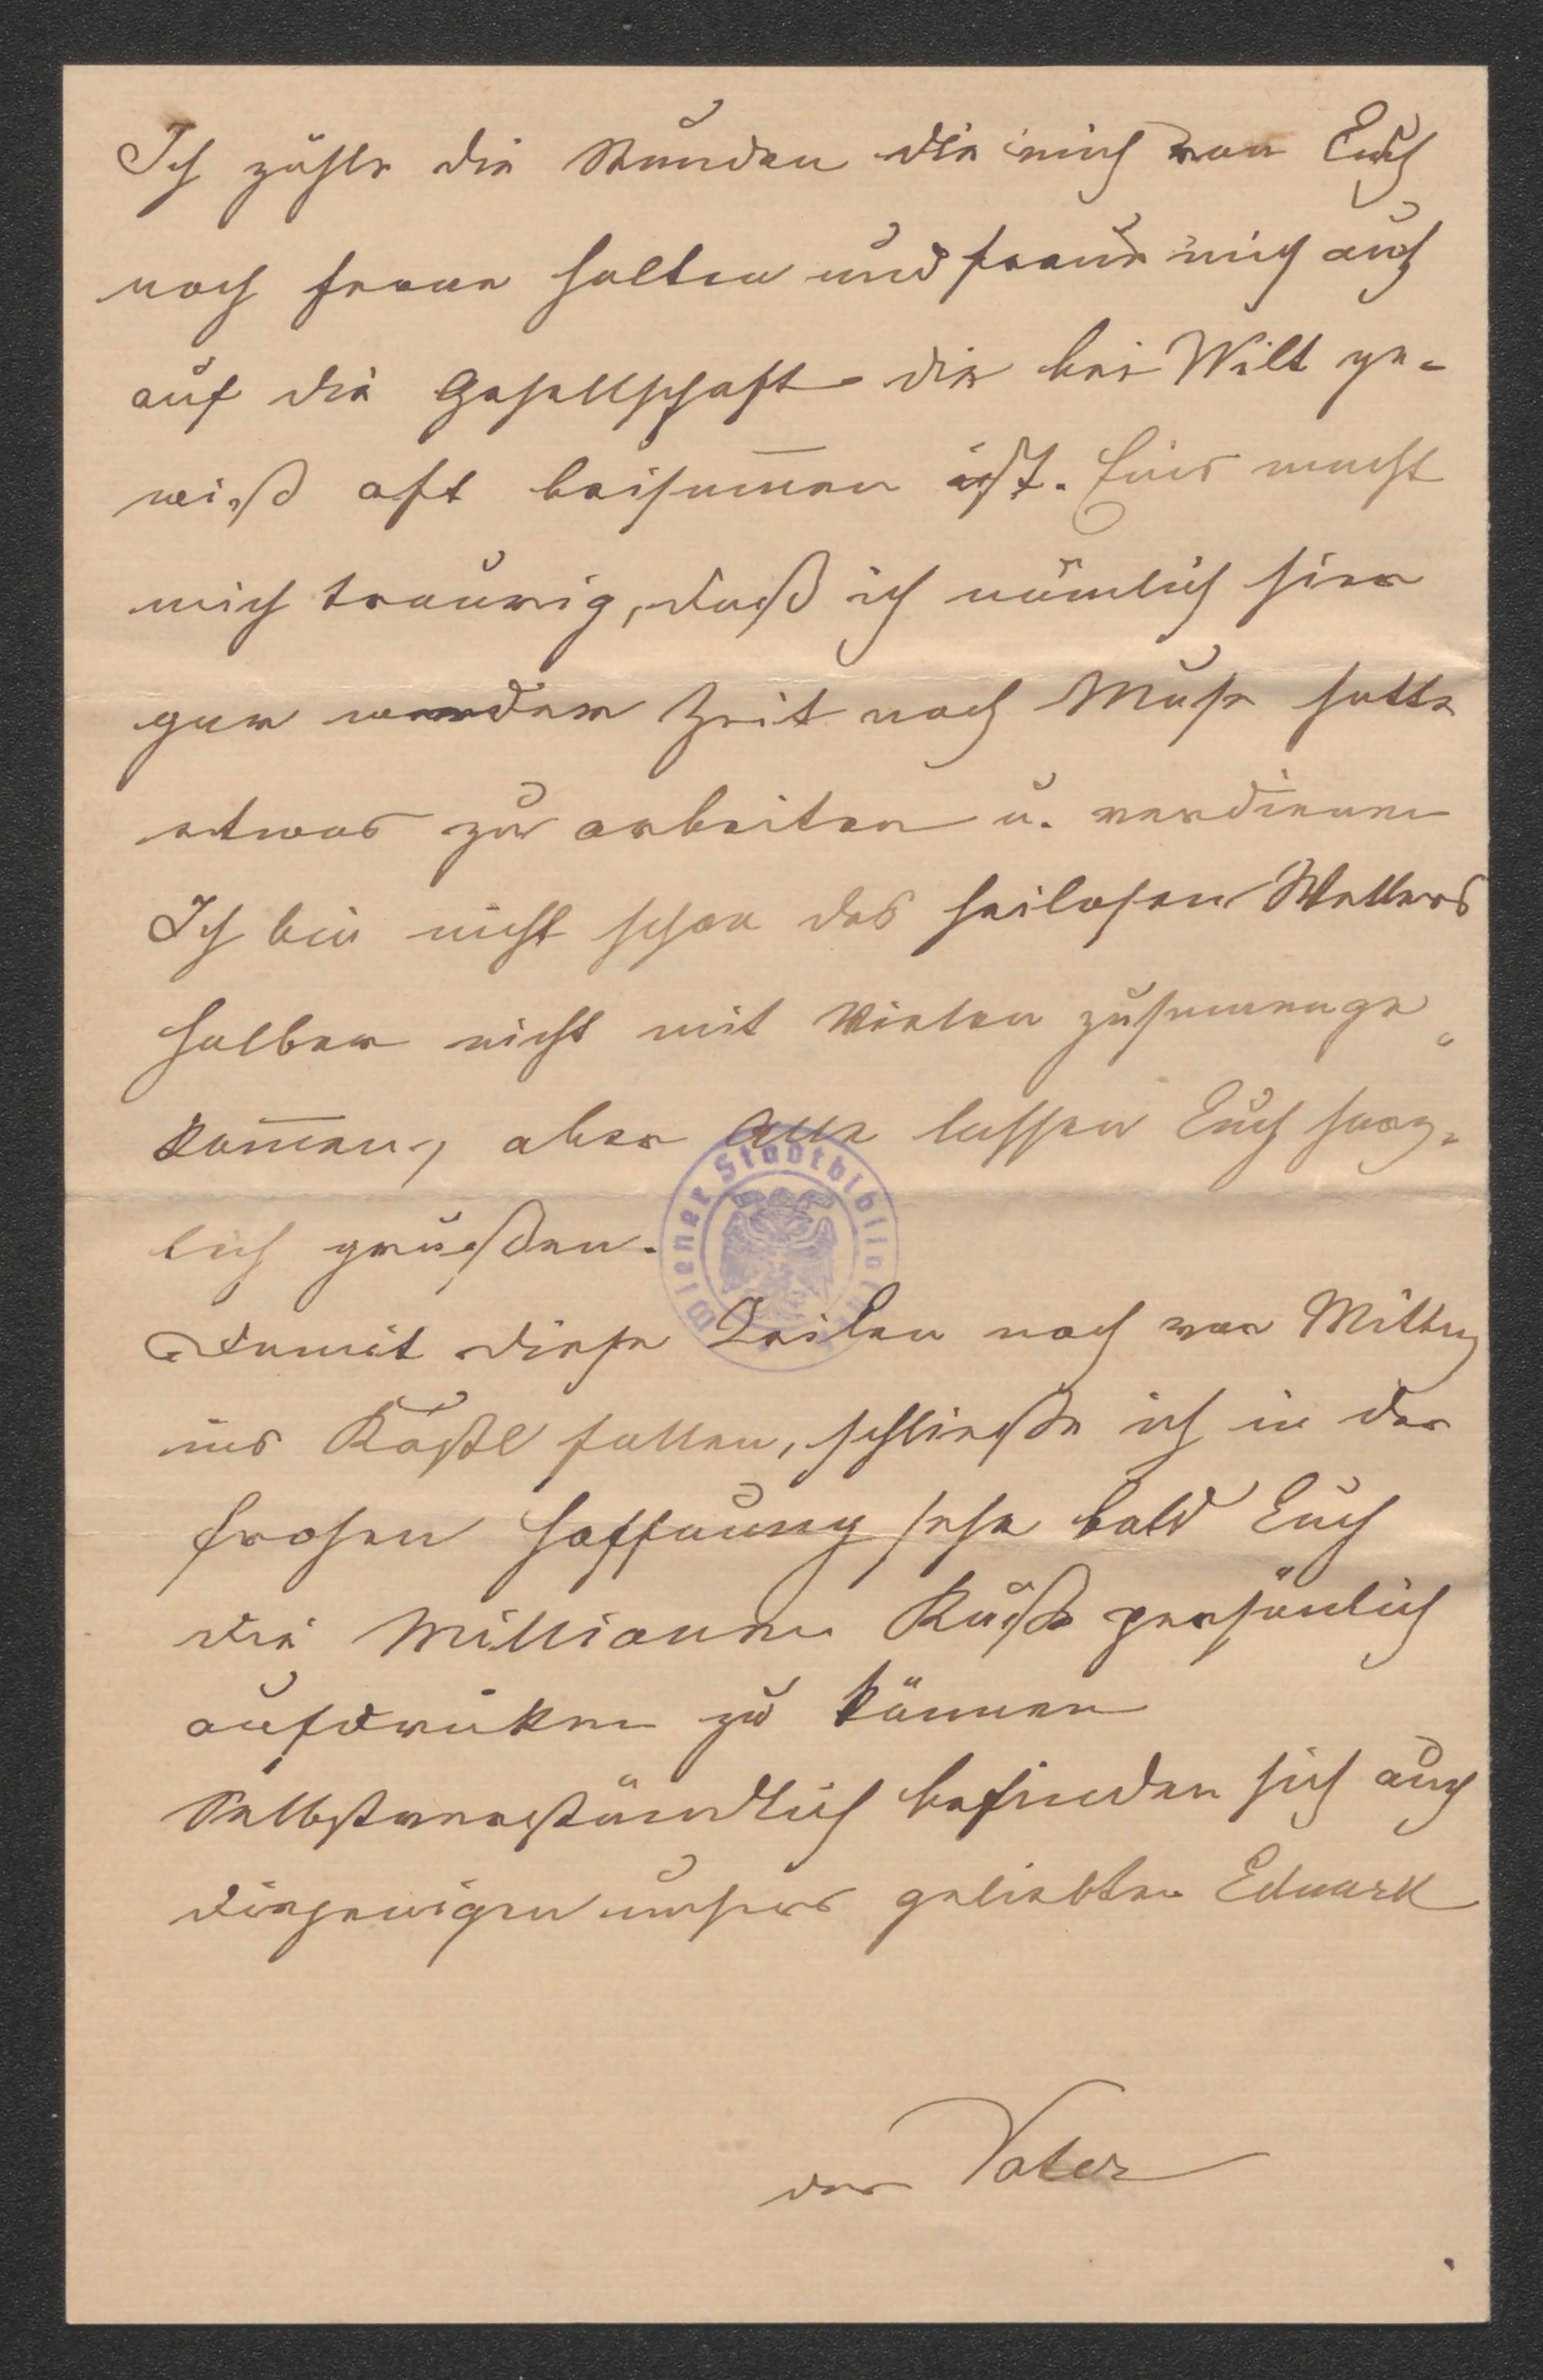 Ich zähle die Stunden die mich von Euch
noch ferne halten und freue mich auch
auf die Gesellschaft die bei Wilt ge-
wiß oft beisam̅en ist. Eins macht
mich traurig, daß ich nämlich hier
gar weder Zeit noch Muße hatte
etwas zu arbeiten u. verdienen
Ich bin nicht schon des heilosen Wetters
halber nicht mit Vielen zusammenge„
kom̅en, aber Alle lassen Euch herz-
lich grüßen.
Wiener Stadtbibliothek
Damit diese Zeilen noch vor Mittag
ins Kästl fallen, schließe ich in der
frohen Hoffnung sehr bald Euch
die Millionen Küße persönlich
aufdrüken zu können
Selbstverständlich befinden sich auch
diejenigen unseres geliebten Eduard
der Vater